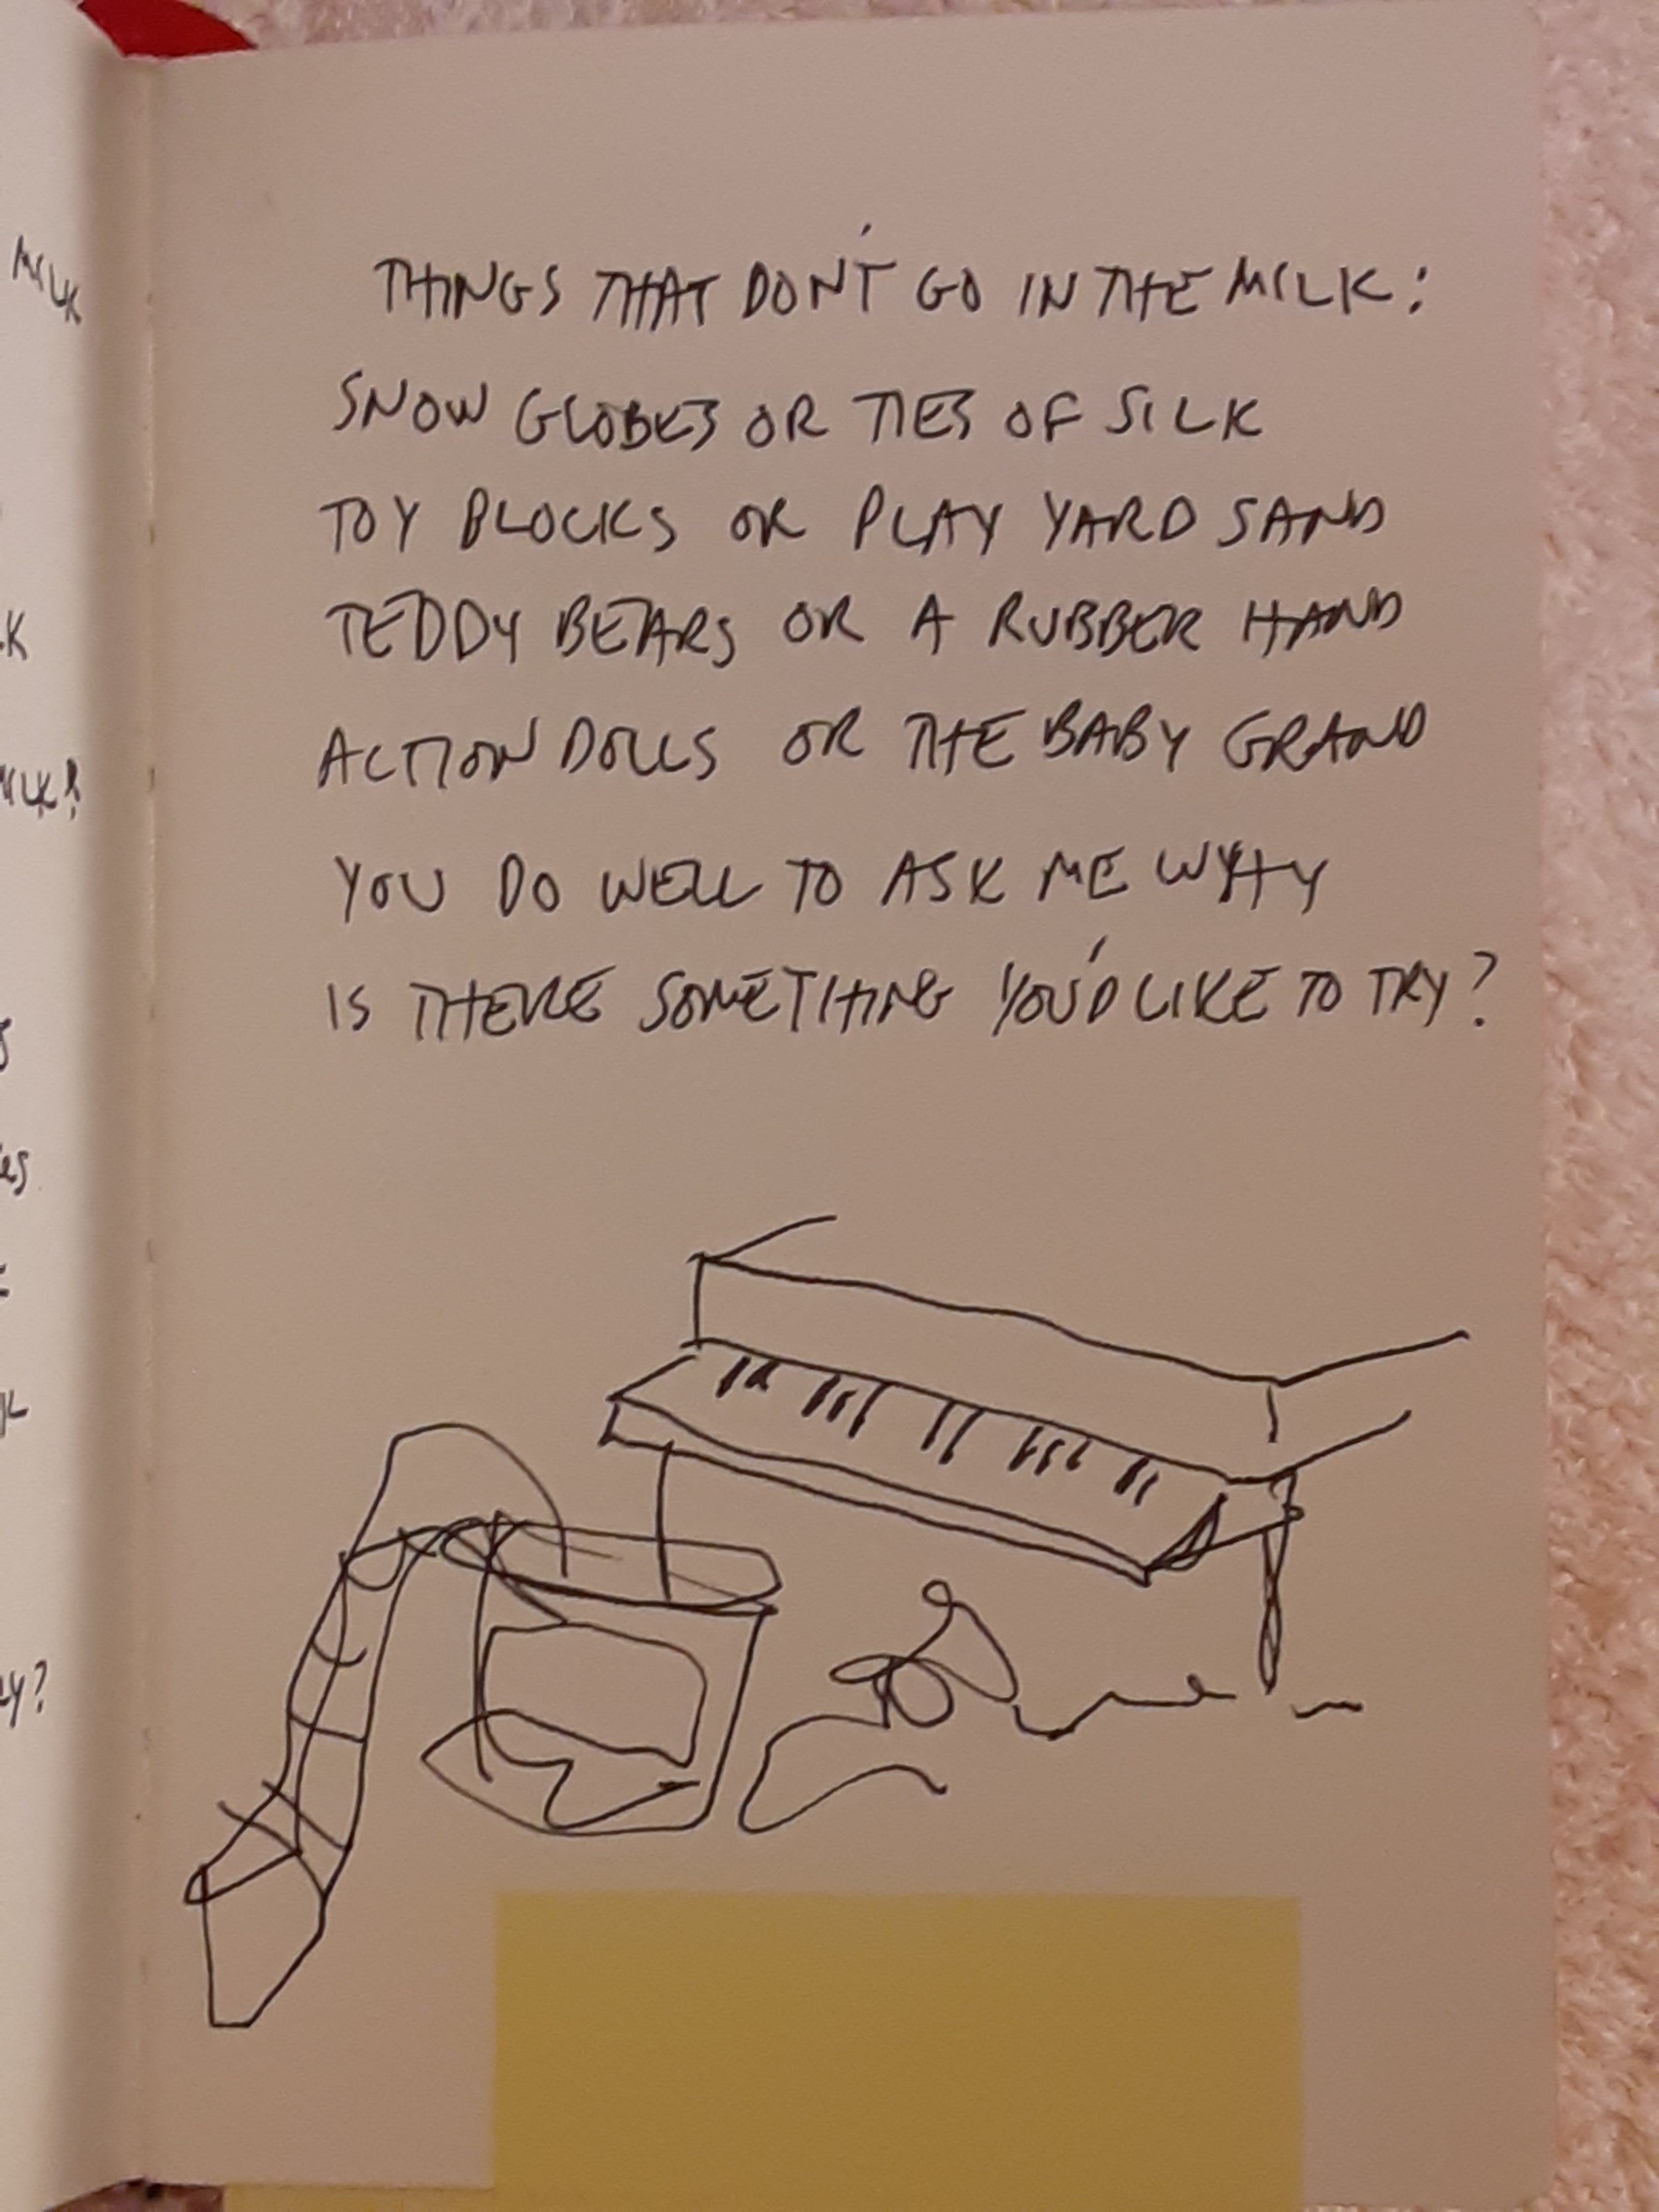 MILK
THINGS THAT DON'T GO IN THE MILK:
SNOW GLOBES OR TIES OF SILK
TOY BLOCKS OR PLAY YARD SAND
TEDDY BEARS OR A RUBBER HAND
ACTION DOLLS OR THE BABY GRAND
YOU DO WELL TO ASK ME WHY
IS THERE SOMETHING YOU'D LIKE TO TRY?